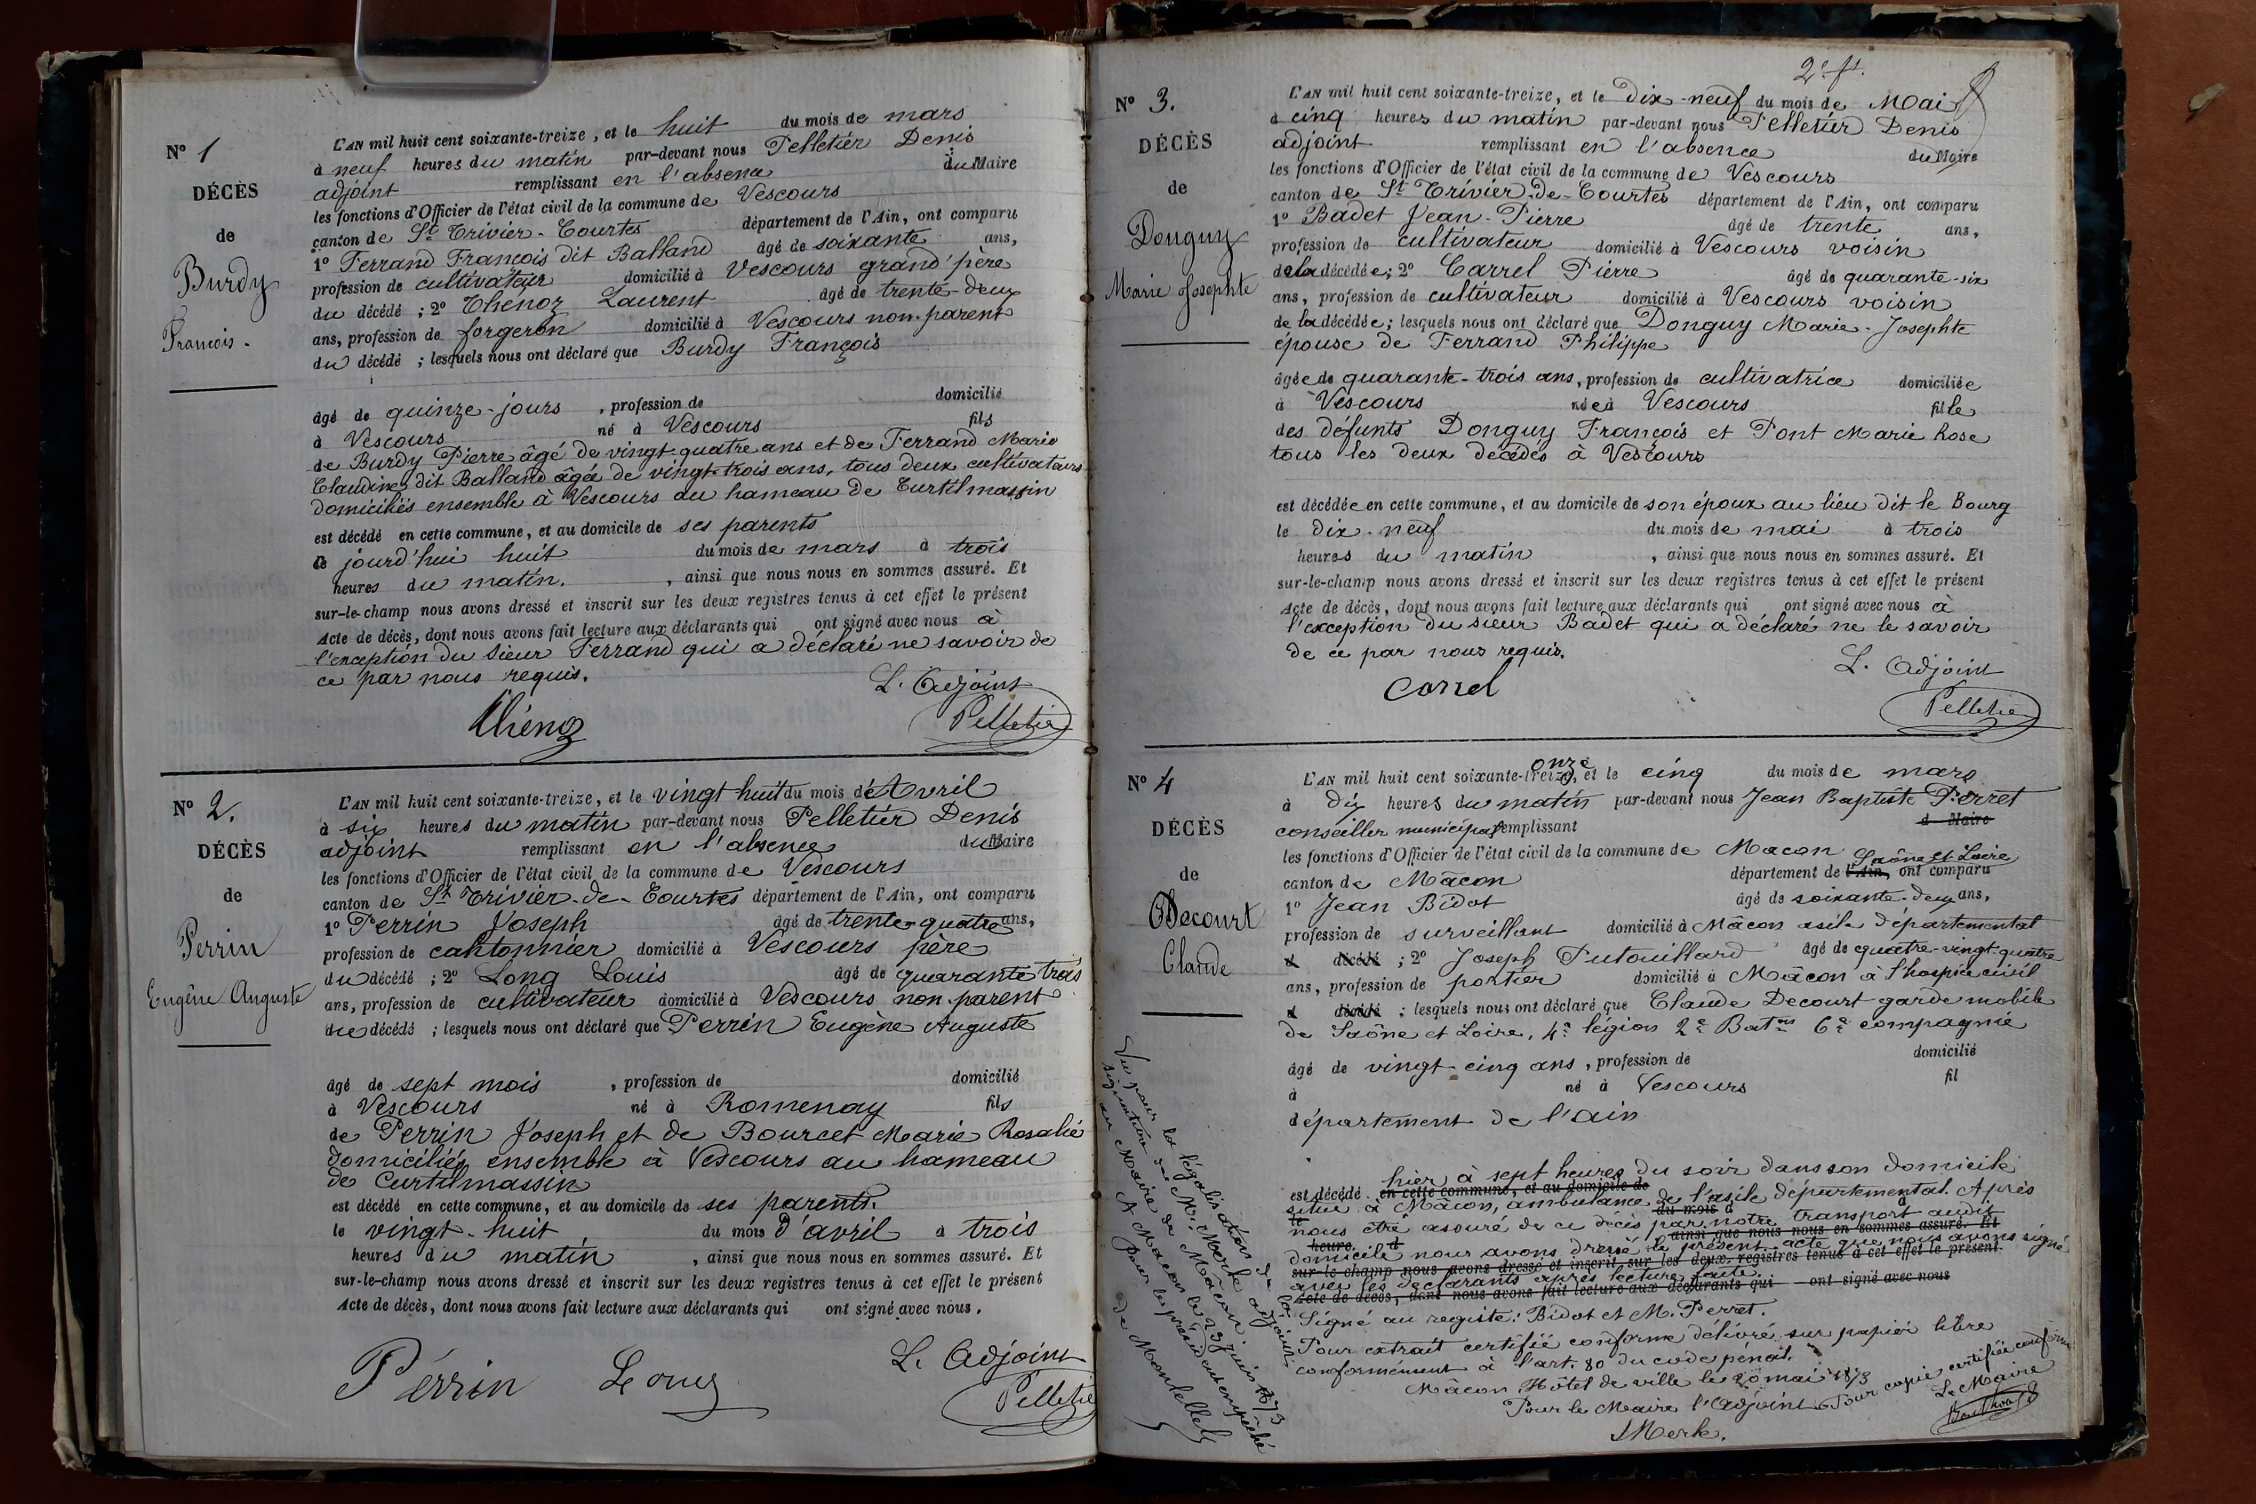 N° 1
DÉCÈS
de
Burdy
François.
L'AN mil huit cent soixante-treize, et le huit du mois de mars
à neuf heures du matin par-devant nous Pelletier Denis
adjoint remplissant en l'absence du Maire
les fonctions d'Officier de l'état civil de la commune de Vescours
canton de St Trivier-Courtes département de l'Ain, ont comparu
1° Ferrand François dit Balland âgé de soixante ans,
profession de cultivateur domicilié à Vescours grand'père
du décédé ; 2° Thenoz Laurent âgé de trente-deux
ans, profession de forgeron domicilié à Vescours non-parent
du décédé ; lesquels nous ont déclaré que Burdy François
âgé de quinze-jours , profession de domicilié
à Vescours né à Vescours fils
de Burdy Pierre âgé de vingt-quatre ans et de Ferrand Marie
Claudine dit Balland âgée de vingt-trois ans, tous deux cultivateurs
domiciliés ensemble à Vescours au hameau de Curtilmassin
est décédé en cette commune, et au domicile de ses parents
ce jourd'hui huit du mois de mars à trois
heures du matin. , ainsi que nous nous en sommes assuré. Et
sur-le-champ nous avons dressé et inscrit sur les deux registres tenus à cet effet le présent
Acte de décès, dont nous avons fait lecture aux déclarants qui ont signé avec nous à
l'exception du sieur Ferrand qui a déclaré ne savoir de
ce par nous requis.
L. Adjoint
Thénoz
Pelletier
N° 2.
DÉCÈS
de
Perrin
Eugène Auguste
L'AN mil huit cent soixante-treize, et le vingt huit du mois d'Avril
à six heures du matin par-devant nous Pelletier Denis
adjoint remplissant en l'absence du Maire
les fonctions d'Officier de l'état civil de la commune de Vescours
canton de St Trivier-de-Courtes département de l'Ain, ont comparu
1° Perrin Joseph âgé de trente-quatre ans,
profession de cantonnier domicilié à Vescours père
du décédé ; 2° Long Louis âgé de quarante trois
ans, profession de cultivateur domicilié à Vescours non parent
du décédé ; lesquels nous ont déclaré que Perrin Eugène Auguste
âgé de sept mois , profession de domicilié
à Vescours né à Romenay fils
de Perrin Joseph et de Bourcet Marie Rosalie
domiciliés ensemble à Vescours au hameau
de Curtilmassin
est décédé en cette commune, et au domicile de ses parents.
le vingt-huit du mois d'avril à trois
heures du matin , ainsi que nous nous en sommes assuré. Et
sur-le-champ nous avons dressé et inscrit sur les deux registres tenus à cet effet le présent
Acte de décès, dont nous avons fait lecture aux déclarants qui ont signé avec nous.
L. Adjoint
Pérrin Long
Pelletier
2e ft.
N° 3.
DÉCÈS
de
Donguy
Marie Josephte
L'AN mil huit cent soixante-treize, et le dix-neuf du mois de Mai
à cinq heures du matin par-devant nous Pelletier Denis
adjoint remplissant en l'absence du Maire
les fonctions d'Officier de l'état civil de la commune de Vescours
canton de St Trivier-de-Courtes département de l'Ain, ont comparu
1° Badet Jean-Pierre âgé de trente ans,
profession de cultivateur domicilié à Vescours voisin
de la décédée; 2° Carrel Pierre âgé de quarante-six
ans, profession de cultivateur domicilié à Vescours voisin
de la décédée; lesquels nous ont déclaré que Donguy Marie-Josephte
épouse de Ferrand Philippe
âgée de quarante-trois ans, profession de cultivatrice domiciliée
à Vescours née à Vescours fille
des défunts Donguy François et Pont Marie Rose
tous les deux décédés à Vescours
est décédée en cette commune, et au domicile de son époux au lieu dit le Bourg
le dix-neuf du mois de mai à trois
heures du matin , ainsi que nous nous en sommes assuré. Et
sur-le-champ nous avons dressé et inscrit sur les deux registres tenus à cet effet le présent
Acte de décès, dont nous avons fait lecture aux déclarants qui ont signé avec nous à
l'exception du sieur Badet qui a déclaré ne le savoir
de ce par nous requis.
L. Adjoint
Carrel
Pelletier
N° 4
DÉCÈS
de
Decourt
Claude
onze
L'AN mil huit cent soixante-treize, et le cinq du mois de mars
à dix heures du matin par-devant nous Jean Baptiste Perret
conseiller municipal remplissant d Maire
les fonctions d'Officier de l'état civil de la commune de Macon
Saône et Loire
canton de Mâcon département de l'Ain, ont comparu
1° Jean Bidot âgé de soixante-deux ans,
profession de surveillant domicilié à Mâcon asile départemental
d décédé ; 2° Joseph Putouillard âgé de quatre-vingt-quatre
ans, profession de portier domicilié à Mâcon à l'hospice civil
d décédé ; lesquels nous ont déclaré que Claude Decourt garde mobile
de Saône et Loire, 4e légion 2e Baton 6e compagnie
âgé de vingt-cinq ans, profession de domicilié
à né à Vescours fil
département de l'ain
hier à sept heures du soir dans son domicile
est décédé en cette commune, et au domicile de
situé à Mâcon, ambulance de l'asile départemental. Après
le du mois d à
nous être assuré de ce décès par notre transport audit
heure d ainsi que nous nous en sommes assuré. Et
domicile nous avons dressé le présent acte que nous avons signé
sur-le-champ nous avons dressé et inscrit sur les deux registres tenus à cet effet le présent
avec les déclarants après lecture faite.
Acte de décès, dont nous avons fait lecture aux déclarants qui ont signé avec nous
Signé au registre: Bidot et M. Perret.
Pour extrait certifié conforme délivré sur papier libre
conformément à l'art. 80 du code pénal.
Mâcon Hôtel de ville le 20 mai 1873
Pour le Maire l'adjoint
Merle.
Pour copie certifiée conforme
Le Maire
Vu pour la légalisation de la
signature de M. Merle adjoint
au Maire de Mâcon.
A Macon le 23 juin 1873
pour le président empêché